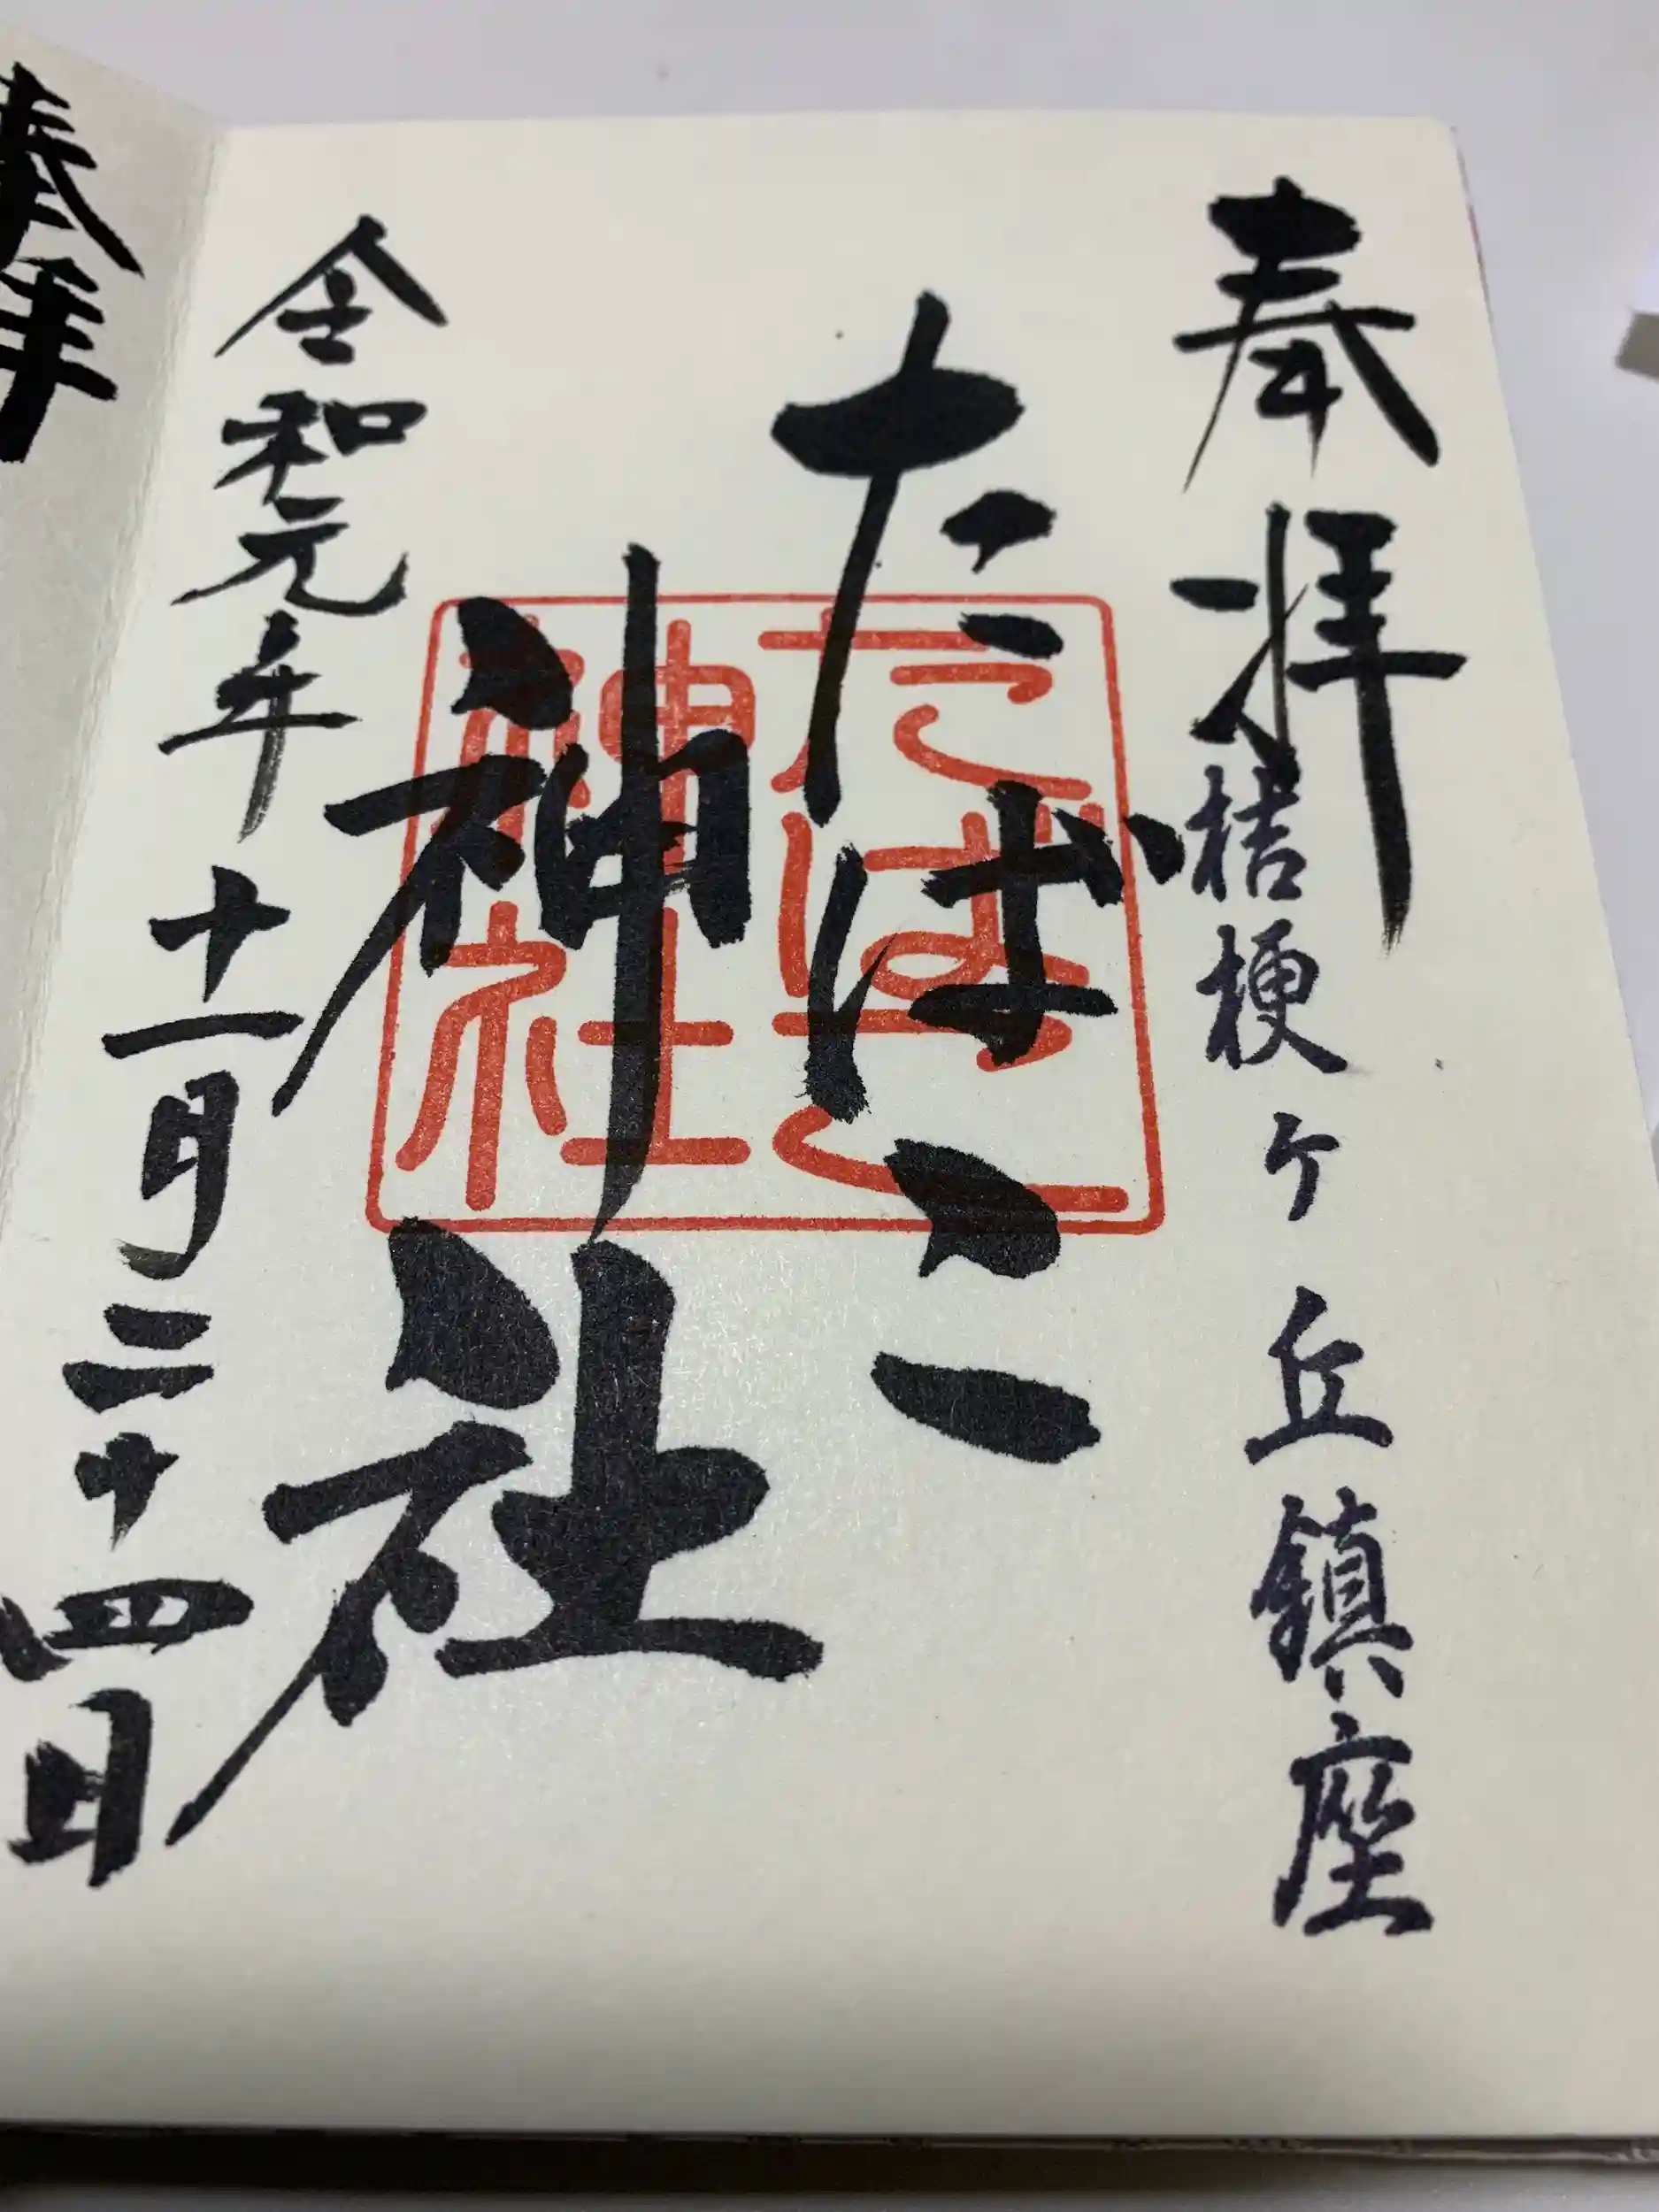 奉拝
桔梗ヶ丘鎮座
たばこ
神社
たばこ
神社
令和元年十一月二十四日
奉拝